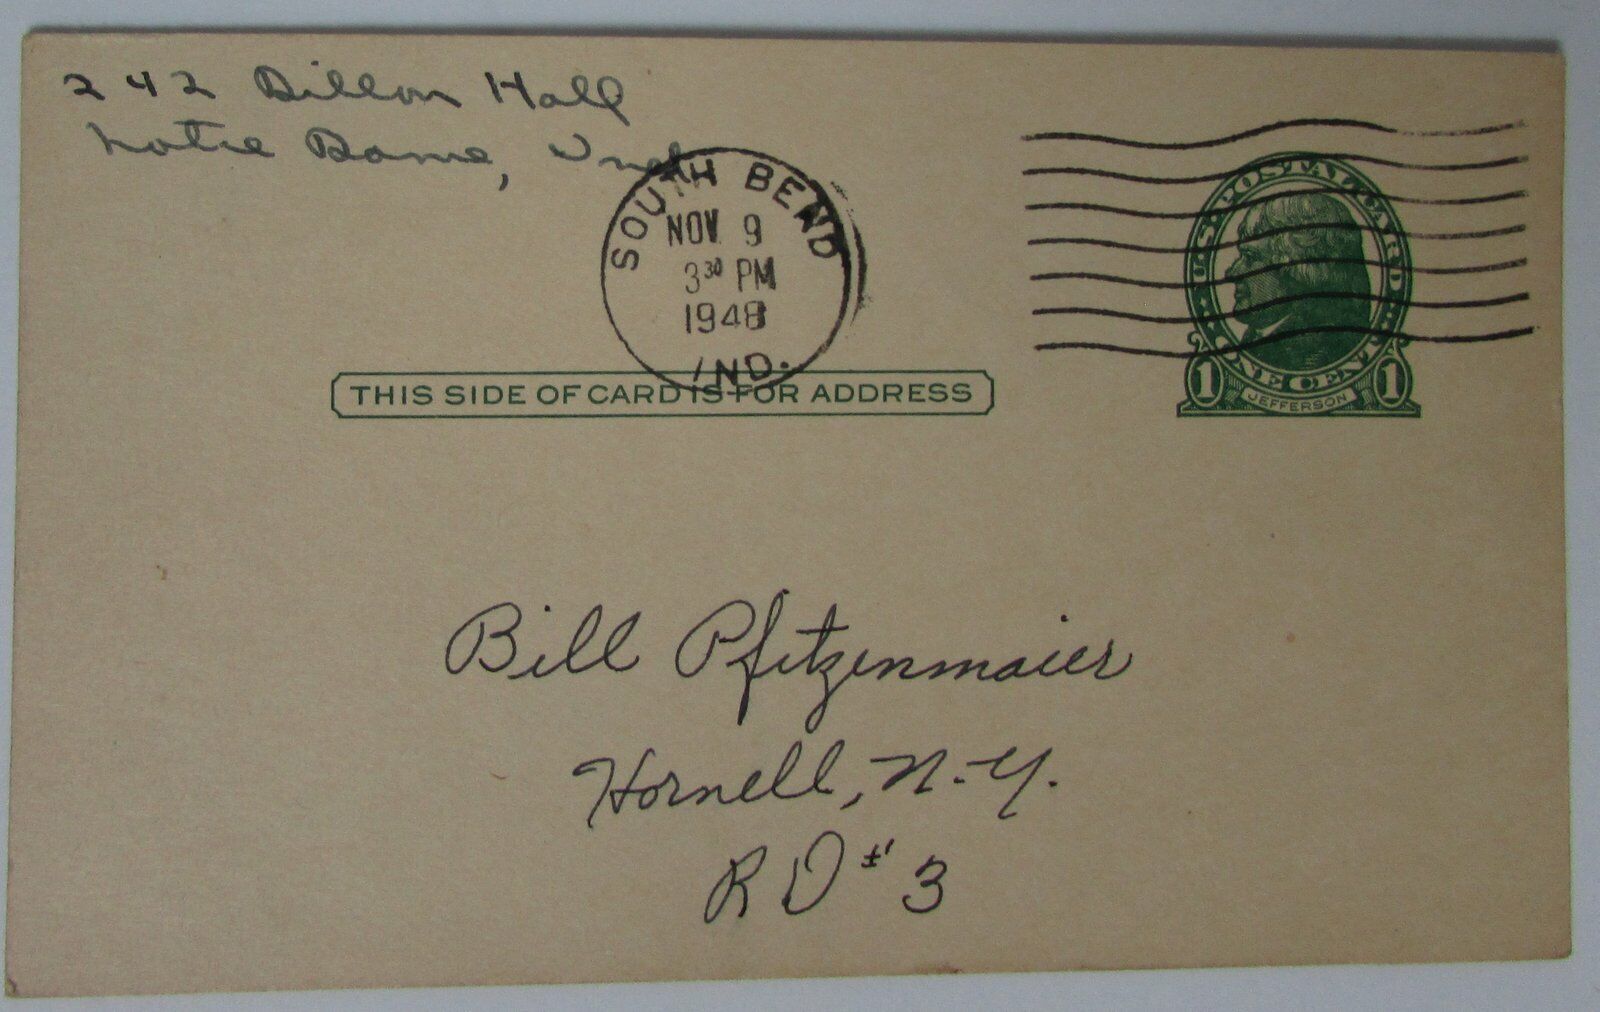 242 Dillon Hall
Notre Dame, Ind.
SOUTH BEND
NOV 9
3 30 PM
1948
IND.
U.S. POSTAL CARD
ONE CENT
1 JEFFERSON 1
THIS SIDE OF CARD IS FOR ADDRESS
Bill Pfitzenmaier
Hornell, N.Y.
RD # 3